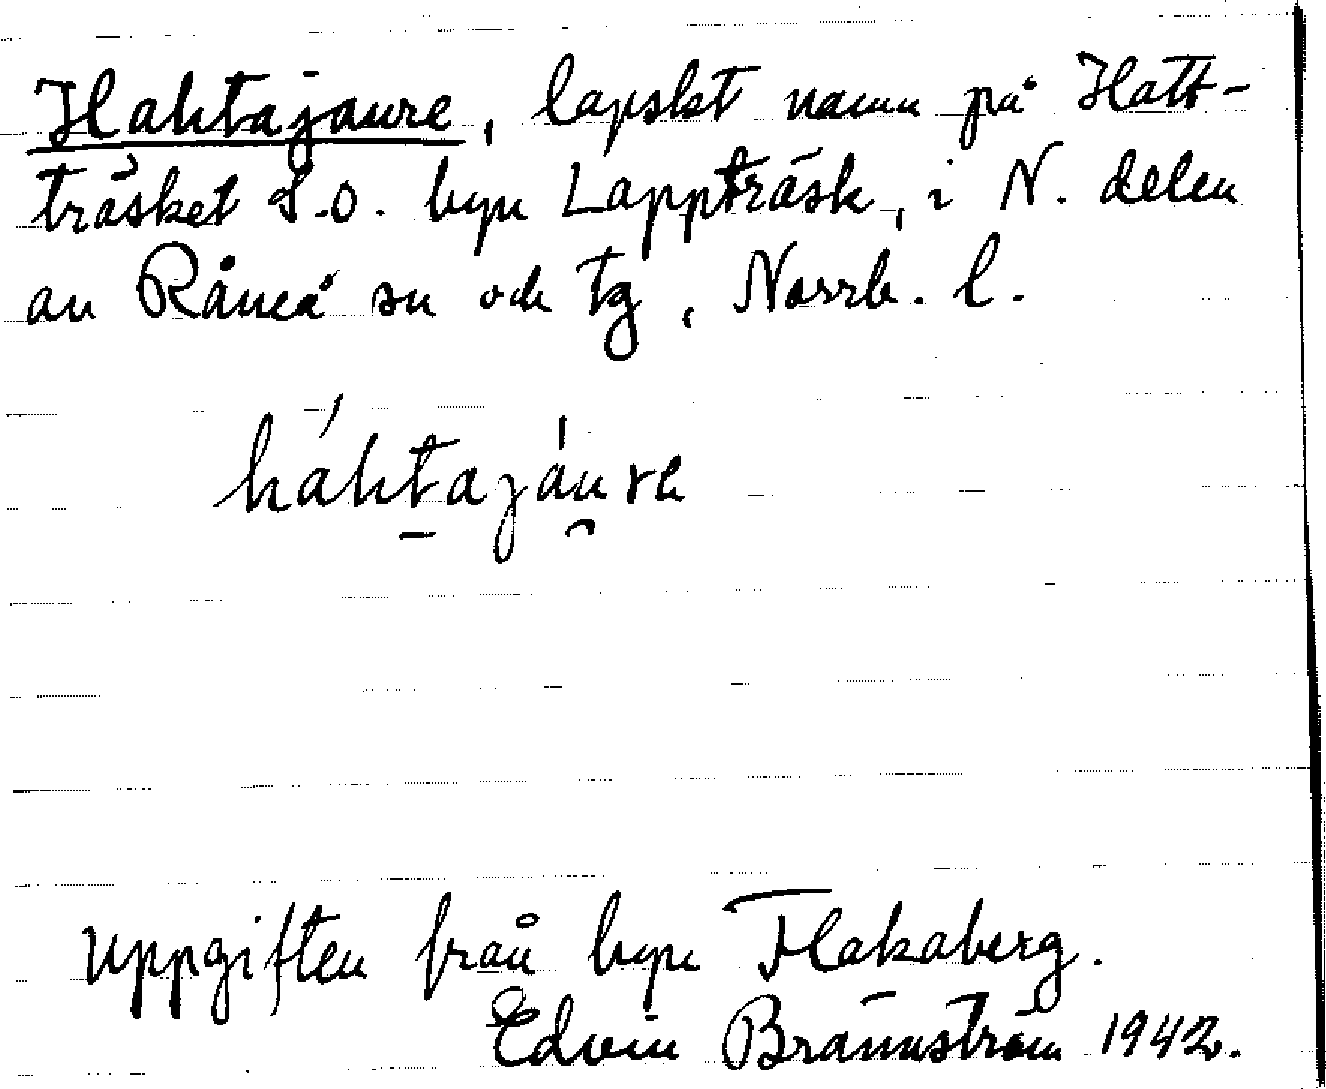 Hahtajaure, lapskt namn på Hatt-
träsket S.O. byn Lappträsk, i N. delen
av Råneå sn och tg, Norrb. l.
háhtajáu̯re
Uppgiften från byn Flakaberg.
Edvin Brännström 1942.